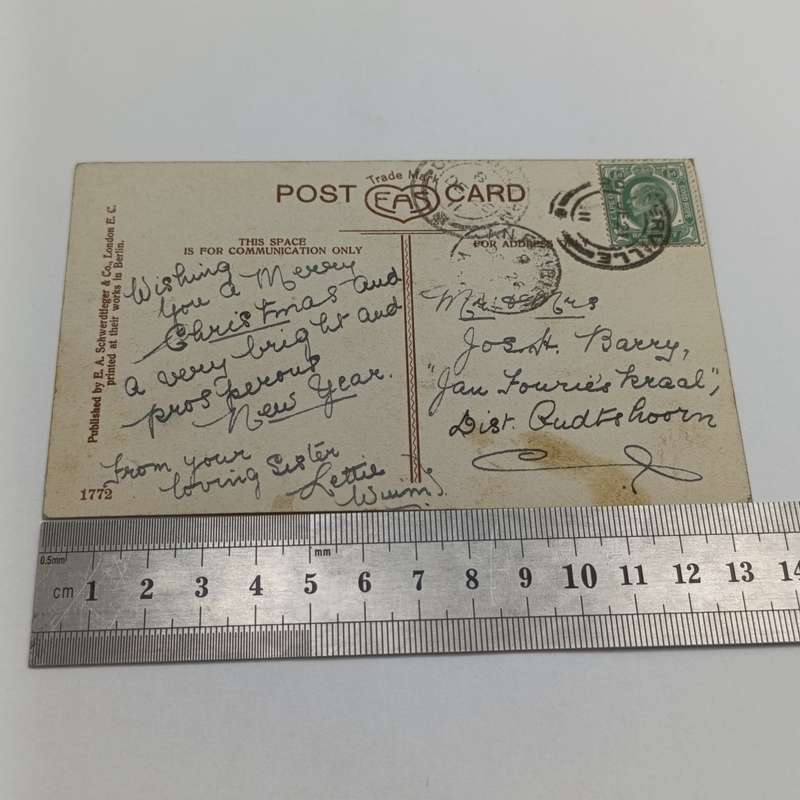 Trade Mark
POST EAS CARD
THIS SPACE
IS FOR COMMUNICATION ONLY
FOR ADDRESS
Published by E. A. Schwerdtfeger & Co., London E. C.
printed at their works in Berlin.
Wishing
you a Merry
Christmas and
a very bright and
prosperous
New Year.
from your
loving Sister
Lettie
1772
Mr. & Mrs
Jos. H. Barry,
"Jan Fourie's Kraal",
Dist. Oudtshoorn
0.5mm
mm
cm 1 2 3 4 5 6 7 8 9 10 11 12 13 14